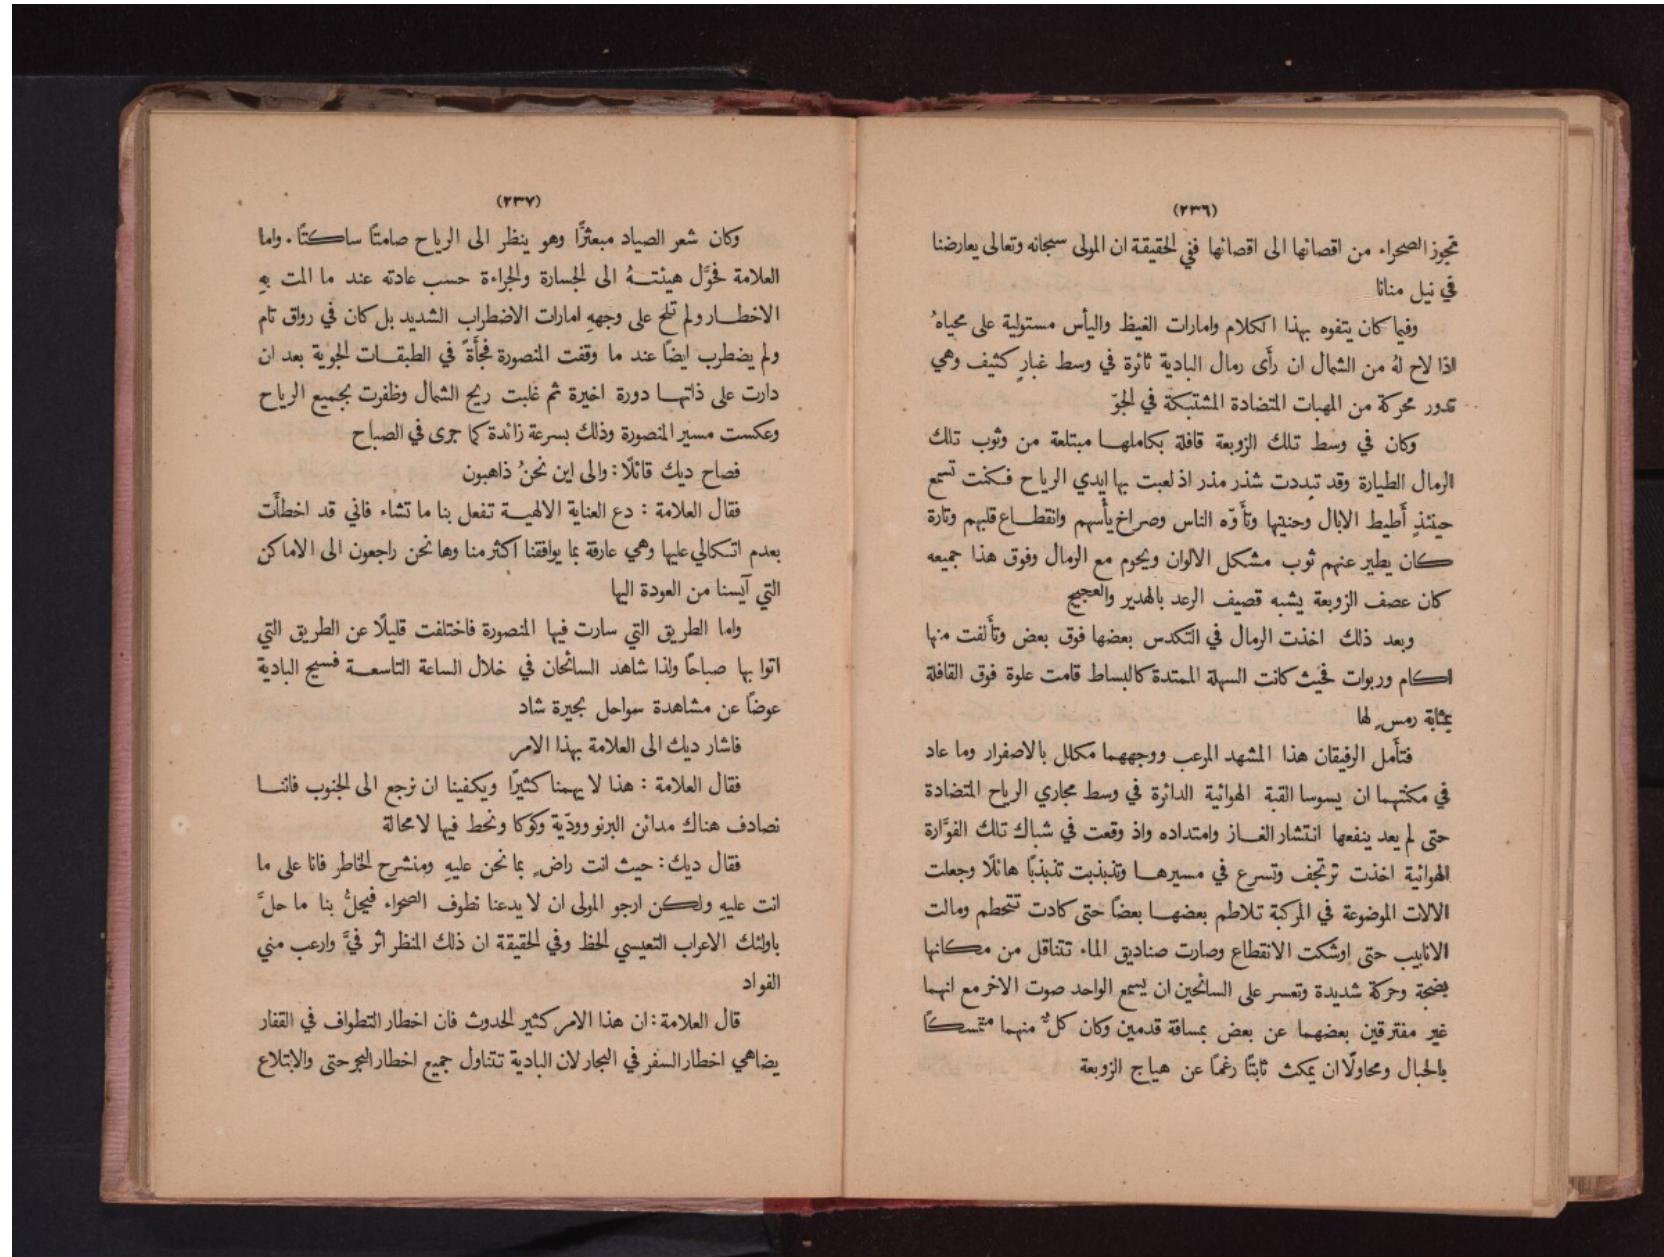 (٢٣٦)
تجوز الصحراء من اقصائها الى اقصائها ففي الحقيقة ان المولى سبحانه وتعالى يعارضنا
في نيل منانا
وفيما كان يتفوه بهذا الكلام وامارات الغيظ واليأس مستولية على محياهُ
اذا لاح لهُ من الشمال ان رأى رمال البادية ثائرة في وسط غبارٍ كثيف وهي
تدور محركة من المهبات المتضادة المشتبكة في الجوّ
وكان في وسط تلك الزوبعة قافلة بكاملهـا مبتلعة من وثوب تلك
الرمال الطيارة وقد تبددت شذر مذر اذ لعبت بها ايدي الرياح فكنت تسمع
حينئذٍ أطيط الابال وحنينها وتأوّه الناس وصراخ يأسهم وانقطـاع قلبهم وتارة
كان يطير عنهم ثوب مشكل الالوان ويحوم مع الرمال وفوق هذا جميعه
كان عصف الزوبعة يشبه قصيف الرعد بالهدير والعجيج
وبعد ذلك اخذت الرمال في التكدس بعضها فوق بعض وتألفت منها
اكام وربوات فحيث كانت السهلة الممتدة كالبساط قامت علوة فوق القافلة
بمثابة رمسٍ لها
فتأمل الرفيقان هذا المشهد المرعب ووجههما مكلل بالاصفرار وما عاد
في مكنتهما ان يسوسا القبة الهوائية الدائرة في وسط مجاري الرياح المتضادة
حتى لم يعد ينفعها انتشار الغـاز وامتداده واذ وقعت في شباك تلك الفوَّارة
الهوائية اخذت ترتجف وتسرع في مسيرهـا وتذبذبت تذبذبًا هائلًا وجعلت
الالات الموضوعة في المركبة تلاطم بعضهـا بعضًا حتى كادت تتحطم ومالت
الانابيب حتى اوشكت الانقطاع وصارت صناديق الماء تتناقل من مكانها
بضجة وحركة شديدة وتعسر على السائحين ان يسمع الواحد صوت الاخر مع انهما
غير مفترقين بعضهما عن بعض بمسافة قدمين وكان كلٌّ منهما متمسكًا
بالحبال ومحاولًا ان يمكث ثابتًا رغمًا عن هياج الزوبعة
(٢٣٧)
وكان شعر الصياد مبعثرًا وهو ينظر الى الرياح صامتًا ساكتًا. واما
العلامة فحوَّل هيئتـهُ الى الجسارة والجراءة حسب عادته عند ما المت بهِ
الاخطـار ولم تلح على وجههِ امارات الاضطراب الشديد بل كان في رواق تام
ولم يضطرب ايضًا عند ما وقفت المنصورة فجأةً في الطبقـات الجوية بعد ان
دارت على ذاتهـا دورة اخيرة ثم غلبت ريح الشمال وظفرت بجميع الرياح
وعكست مسير المنصورة وذلك بسرعة زائدة كما جرى في الصباح
فصاح ديك قائلًا: والى اين نحنُ ذاهبون
فقال العلامة : دع العناية الالهيـة تفعل بنا ما تشاء فاني قد اخطأت
بعدم اتكالي عليها وهي عارفة بما يوافقنا اكثر منا وها نحن راجعون الى الاماكن
التي آيسنا من العودة اليها
واما الطريق التي سارت فيها المنصورة فاختلفت قليلًا عن الطريق التي
اتوا بها صباحًا ولذا شاهد السائحان في خلال الساعة التاسعـة فسيح البادية
عوضًا عن مشاهدة سواحل بحيرة شاد
فاشار ديك الى العلامة بهذا الامر
فقال العلامة : هذا لا يهمنا كثيرًا ويكفينا ان نرجع الى الجنوب فاننـا
نصادف هناك مدائن البرنو وودّية وكوكا ونحط فيها لا محالة
فقال ديك: حيث انت راضٍ بما نحن عليهِ ومنشرح الخاطر فانا على ما
انت عليهِ ولكن ارجو المولى ان لا يدعنا نطوف الصحراء فيحلُّ بنا ما حلَّ
باولئك الاعراب التعيسي الحظ وفي الحقيقة ان ذلك المنظر اثر فيَّ وارعب مني
الفواد
قال العلامة: ان هذا الامر كثير الحدوث فان اخطار التطواف في القفار
يضاهي اخطار السفر في البحار لان البادية تتناول جميع اخطار البحر حتى والابتلاع